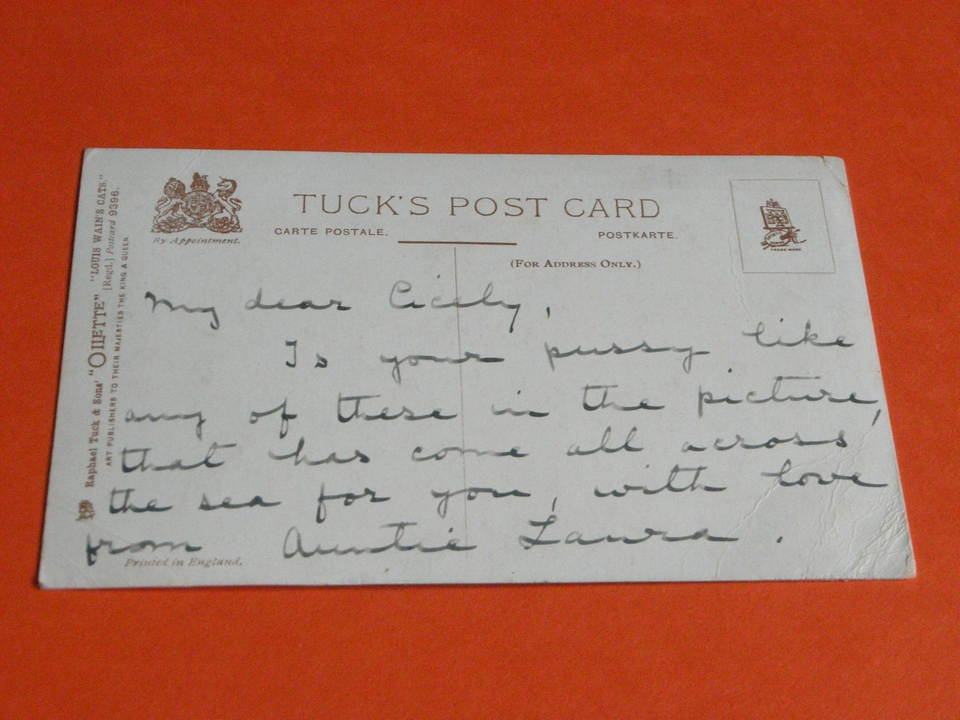 TUCK'S POST CARD
By Appointment.
CARTE POSTALE.
POSTKARTE.
(FOR ADDRESS ONLY.)
TRADE MARK
Raphael Tuck & Sons' "OILETTE" "LOUIS WAIN'S CATS."
[Regd.] Postcard 9396.
ART PUBLISHERS TO THEIR MAJESTIES THE KING & QUEEN.
My dear Cicely,
Is your pussy like
any of these in the picture,
that has come all across
the sea for you, with love
from Auntie Laura.
Printed in England.